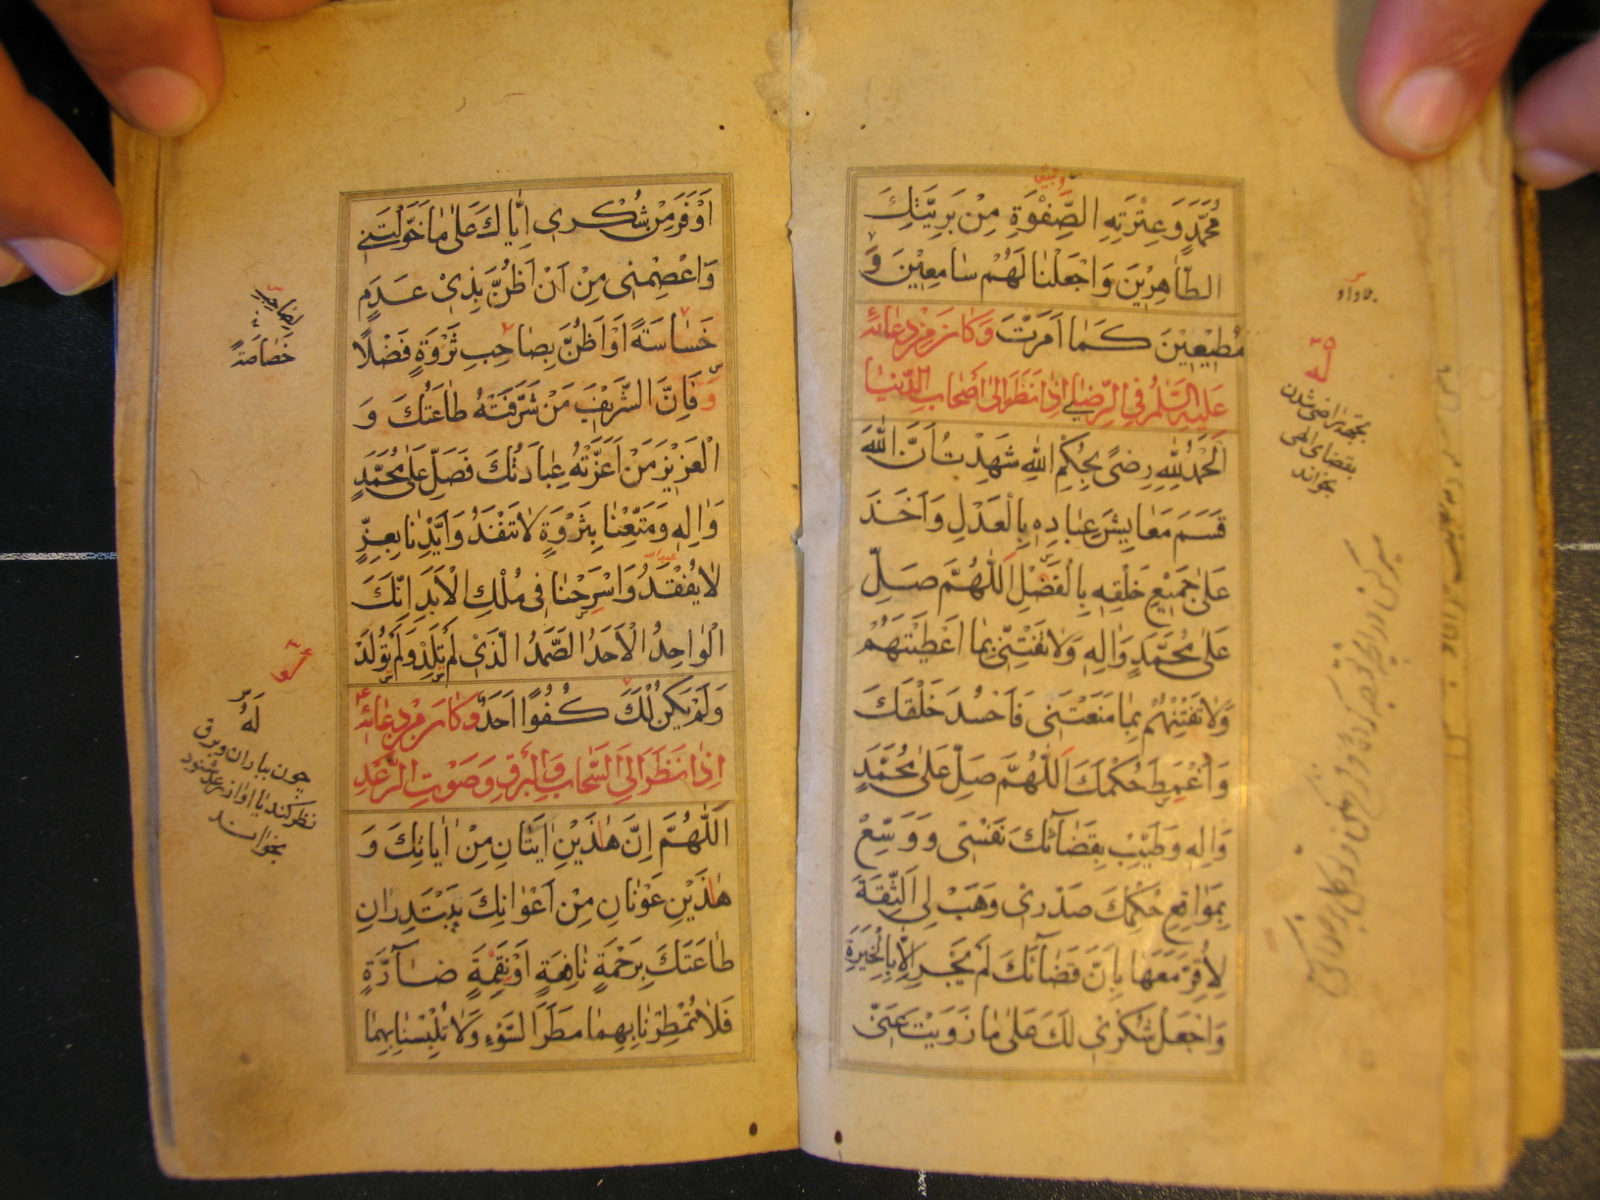 مُحَمَّدٍ وَعِتْرَتِهِ الصِّفْوَةِ مِنْ بَرِيَّتِكَ
الطَّاهِرِيْنَ وَاجْعَلْنَا لَهُمْ سَامِعِيْنَ وَ
مُطِيْعِيْنَ كَمَا اَمَرْتَ وَكَانَ مِنْ دُعَائِهِ
عَلَيْهِ السَّلٰمُ فِي الرِّضٰى اِذَا نَظَرَ اِلٰى اَصْحَابِ الدُّنْيَا
اَلْحَمْدُ لِلّٰهِ رِضًى بِحُكْمِ اللّٰهِ شَهِدْتُ اَنَّ اللّٰهَ
قَسَمَ مَعَايِشَ عِبَادِهِ بِالْعَدْلِ وَاَخَذَ
عَلٰى جَمِيْعِ خَلْقِهِ بِالْفَضْلِ اَللّٰهُمَّ صَلِّ
عَلٰى مُحَمَّدٍ وَاٰلِهِ وَلَا تَفْتِنِّيْ بِمَا اَعْطَيْتَهُمْ
وَلَا تَفْتِنْهُمْ بِمَا مَنَعْتَنِيْ فَاَحْسُدَ خَلْقَكَ
وَاَغْمِطَ حُكْمَكَ اَللّٰهُمَّ صَلِّ عَلٰى مُحَمَّدٍ
وَاٰلِهِ وَطَيِّبْ بِقَضَآئِكَ نَفْسِيْ وَوَسِّعْ
بِمَوَاقِعِ حُكْمِكَ صَدْرِيْ وَهَبْ لِي الثِّقَةَ
لِاُقِرَّ مَعَهَا بِاَنَّ قَضَآئَكَ لَمْ يَجْرِ اِلَّا بِالْخِيَرَةِ
وَاجْعَلْ شُكْرِيْ لَكَ عَلٰى مَا زَوَيْتَ عَنِّيْ
لَهُ
بجهة راضى شدن
بقضاى الهى
بخواند
اَوْفَرَ مِنْ شُكْرِي اِيَّاكَ عَلٰى مَا خَوَّلْتَنِيْ
وَاعْصِمْنِي مِنْ اَنْ اَظُنَّ بِذِيْ عَدَمٍ
خَسَاسَةً اَوْ اَظُنَّ بِصَاحِبِ ثَرْوَةٍ فَضْلًا
وَ فَاِنَّ الشَّرِيْفَ مَنْ شَرَّفَتْهُ طَاعَتُكَ وَ
الْعَزِيْزَ مَنْ اَعَزَّتْهُ عِبَادَتُكَ فَصَلِّ عَلٰى مُحَمَّدٍ
وَاٰلِهِ وَمَتِّعْنَا بِثَرْوَةٍ لَا تَنْفَدُ وَاَيِّدْنَا بِعِزٍّ
لَا يُفْقَدُ وَاسْرَحْنَا فِي مُلْكِ الْاَبَدِ اِنَّكَ
الْوَاحِدُ الْاَحَدُ الصَّمَدُ الَّذِيْ لَمْ تَلِدْ وَلَمْ تُوْلَدْ
وَلَمْ يَكُنْ لَكَ كُفُوًا اَحَدٌ وَكَانَ مِنْ دُعَائِهِ
اِذَا نَظَرَ اِلَى السَّحَابِ وَالْبَرْقِ وَصَوْتِ الرَّعْدِ
اَللّٰهُمَّ اِنَّ هٰذَيْنِ اٰيَتَانِ مِنْ اٰيَاتِكَ وَ
هٰذَيْنِ عَوْنَانِ مِنْ اَعْوَانِكَ يَبْتَدِرَانِ
طَاعَتَكَ بِرَحْمَةٍ نَافِعَةٍ اَوْ نَقِمَةٍ ضَآرَّةٍ
فَلَا تُمْطِرْنَا بِهِمَا مَطَرَ السَّوْءِ وَلَا تُلْبِسْنَا بِهِمَا
خَصَاصَةً
لَهُ
چون بباران و برق
نظر كند يا اواز رعد شنود
بخواند